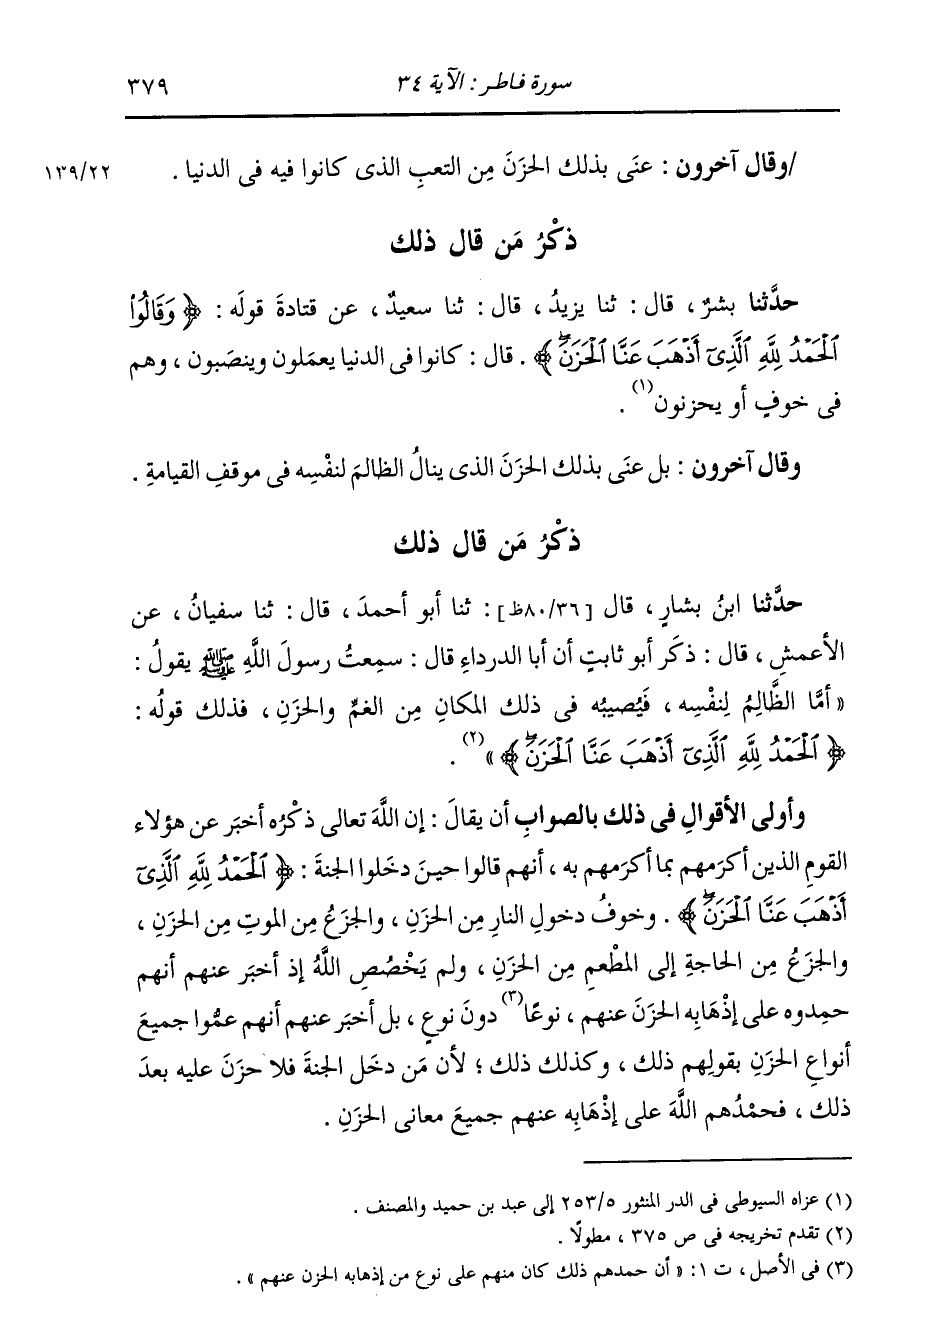 سورة فاطر : الآية ٣٤ ٣٧٩
/وقال آخرون : عنَى بذلك الحزَنَ مِن التعبِ الذى كانوا فيه فى الدنيا . ١٣٩/٢٢
ذكْرُ مَن قال ذلك
حدَّثنا بشرٌ ، قال : ثنا يزيدُ ، قال : ثنا سعيدٌ ، عن قتادةَ قولَه : ﴿ وَقَالُوا۟
ٱلْحَمْدُ لِلَّهِ ٱلَّذِىٓ أَذْهَبَ عَنَّا ٱلْحَزَنَۖ ﴾ . قال : كانوا فى الدنيا يعمَلون وينصَبون ، وهم
فى خوفٍ أو يحزنون(١) .
وقال آخرون : بل عنَى بذلك الحزَنَ الذى ينالُ الظالمَ لنفْسِه فى موقفِ القيامةِ .
ذكْرُ مَن قال ذلك
حدَّثنا ابنُ بشارٍ ، قال [٨٠/٣٦ظ] : ثنا أبو أحمدَ ، قال : ثنا سفيانُ ، عن
الأعمشِ ، قال : ذكَر أبو ثابتٍ أن أبا الدرداءِ قال : سمِعتُ رسولَ اللَّهِ ﷺ يقولُ :
« أمَّا الظَّالِمُ لِنفْسِه ، فَيُصيبُه فى ذلك المكانِ مِن الغمِّ والحزَنِ ، فذلك قولُه :
﴿ ٱلْحَمْدُ لِلَّهِ ٱلَّذِىٓ أَذْهَبَ عَنَّا ٱلْحَزَنَۖ ﴾ »(٢) .
وأولى الأقوالِ فى ذلك بالصوابِ أن يقالَ : إن اللَّهَ تعالى ذكْرُه أخبَر عن هؤلاء
القومِ الذين أكرَمهم بما أكرَمهم به ، أنهم قالوا حينَ دخَلوا الجنةَ : ﴿ ٱلْحَمْدُ لِلَّهِ ٱلَّذِىٓ
أَذْهَبَ عَنَّا ٱلْحَزَنَۖ ﴾ . وخوفُ دخولِ النارِ مِن الحزَنِ ، والجزَعُ مِن الموتِ مِن الحزَنِ ،
والجزَعُ مِن الحاجةِ إلى المطْعمِ مِن الحزَنِ ، ولم يَخْصُصِ اللَّهُ إذ أخبَر عنهم أنهم
حمِدوه على إذْهَابِه الحزَنَ عنهم ، نوعًا(٣) دونَ نوعٍ ، بل أخبَر عنهم أنهم عمُّوا جميعَ
أنواعِ الحزَنِ بقولِهم ذلك ، وكذلك ذلك ؛ لأن مَن دخَل الجنةَ فلا حزَنَ عليه بعدَ
ذلك ، فحمْدُهم اللَّهَ على إذْهَابِه عنهم جميعَ معانى الحزَنِ .
(١) عزاه السيوطى فى الدر المنثور ٢٥٣/٥ إلى عبد بن حميد والمصنف .
(٢) تقدم تخريجه فى ص ٣٧٥ ، مطولًا .
(٣) فى الأصل ، ت ١: « أن حمدهم ذلك كان منهم على نوع من إذهابه الحزن عنهم » .